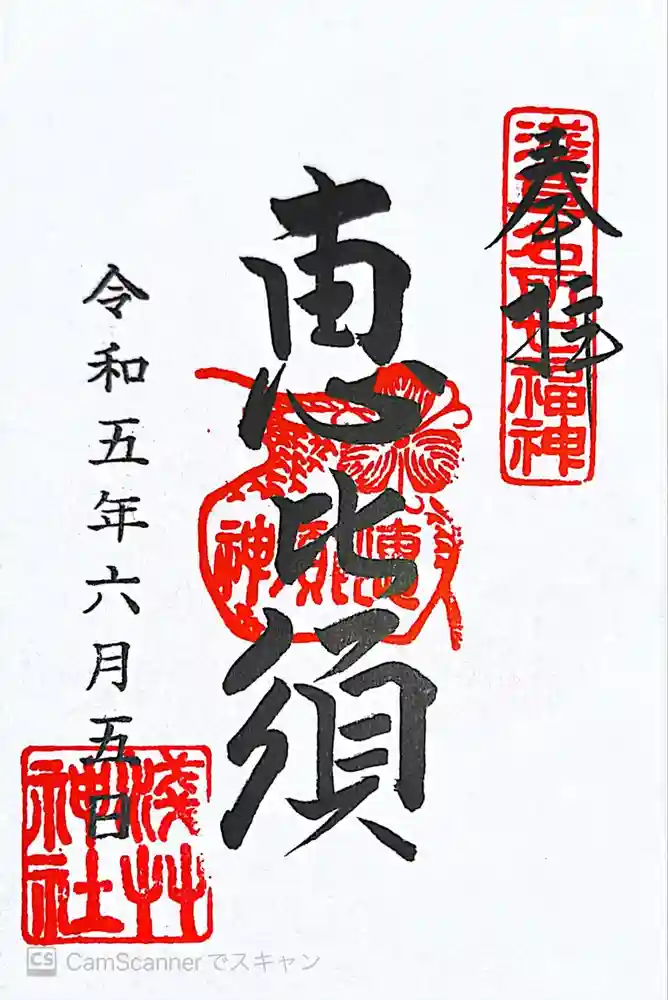 奉拝
浅草名所七福神
恵比須
恵比須神
令和五年六月五日
淺草神社
CS CamScanner でスキャン